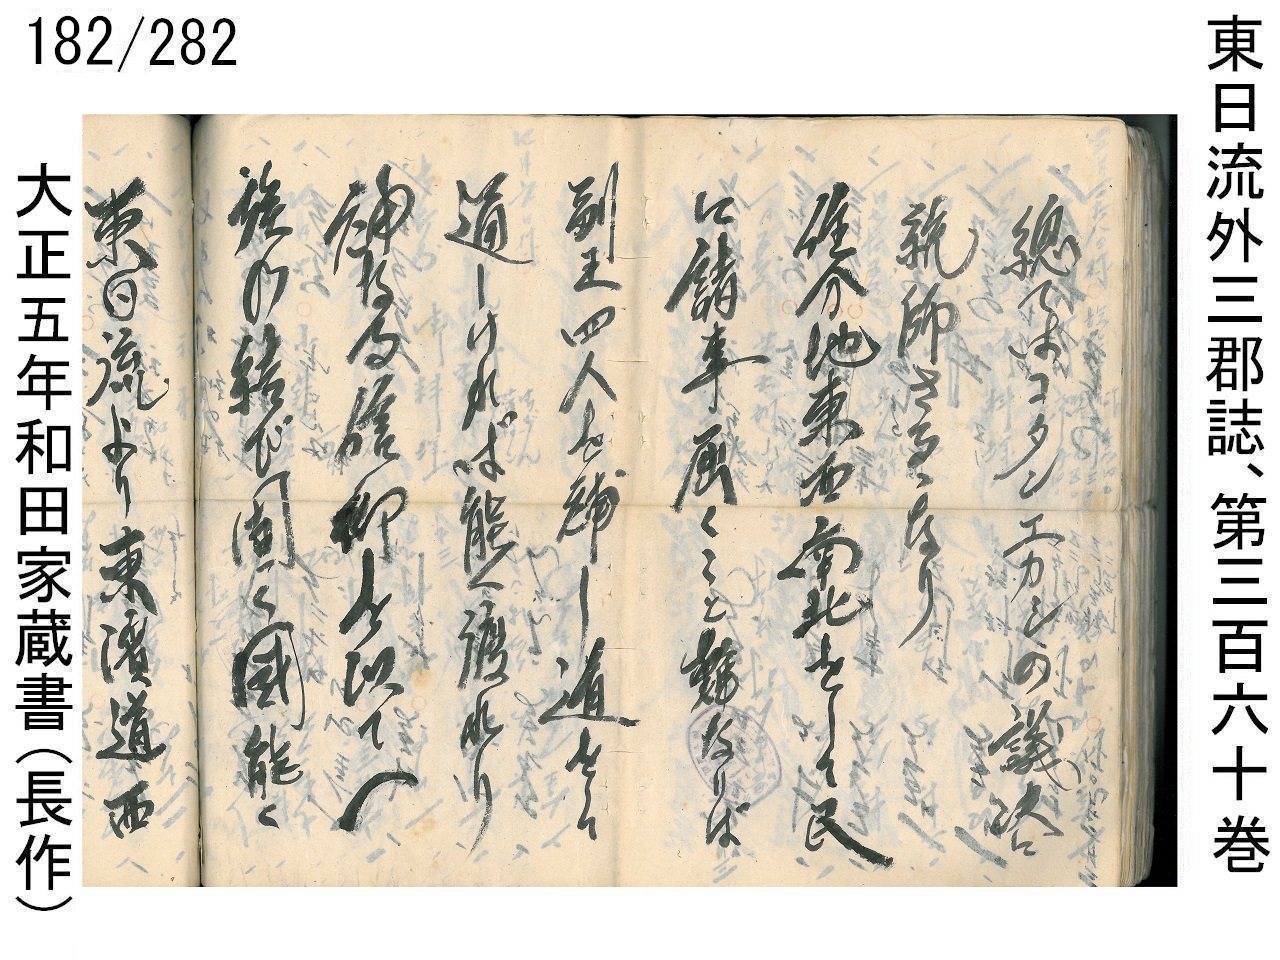 182/282
東日流外三郡誌、第三百六十巻
總てはコタンエカシの議決に
統師さるなり
住分地東西南北として民
に諸事届くこと難なりば
副王四人を補し道を
道しければ能く渡れり
神なる信仰を以て人
強め結び固く國能く
東日流より東濱道西
大正五年和田家蔵書(長作)